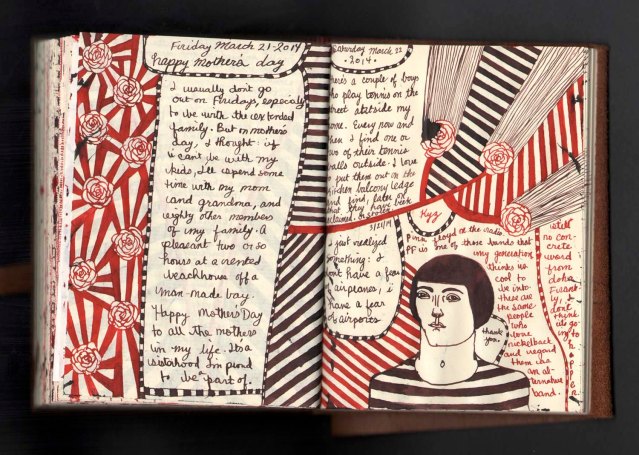 Friday March 21·2014
happy mother's day
I usually don't go
out on Fridays, especially
to be with the extended
family. But on mother's
day, I thought: if
I can't be with my
kids, I'll spend some
time with my mom
(and grandma, and
eighty other members
of my family. A
pleasant two or so
hours at a rented
beachhouse off a
man-made bay.
Happy Mother's Day
to all the mothers
in my life. It's a
sisterhood I'm proud
to be a part of.
Saturday March 22
·2014·
here's a couple of boys
who play tennis on the
street outside my
home. Every now and
then I find one or
two of their tennis
balls outside. I love
to put them out on the
kitchen balcony ledge
and find, later on
that they have been
reclaimed.
3/21/14
I just realized
something: I
don't have a fear
of airplanes, I
have a fear
of airports
Pink Floyd at the radio
PF is one of those bands that
my generation
thinks is
cool to
be into
these are
the same
people
who
love
nickelback
and regard
them as
an al-
ternative
band.
thank
you.
still
no con-
crete
word
from
doha.
Frank-
ly, I
don't
think
it's go-
ing to
h
a
p
p
e
n.